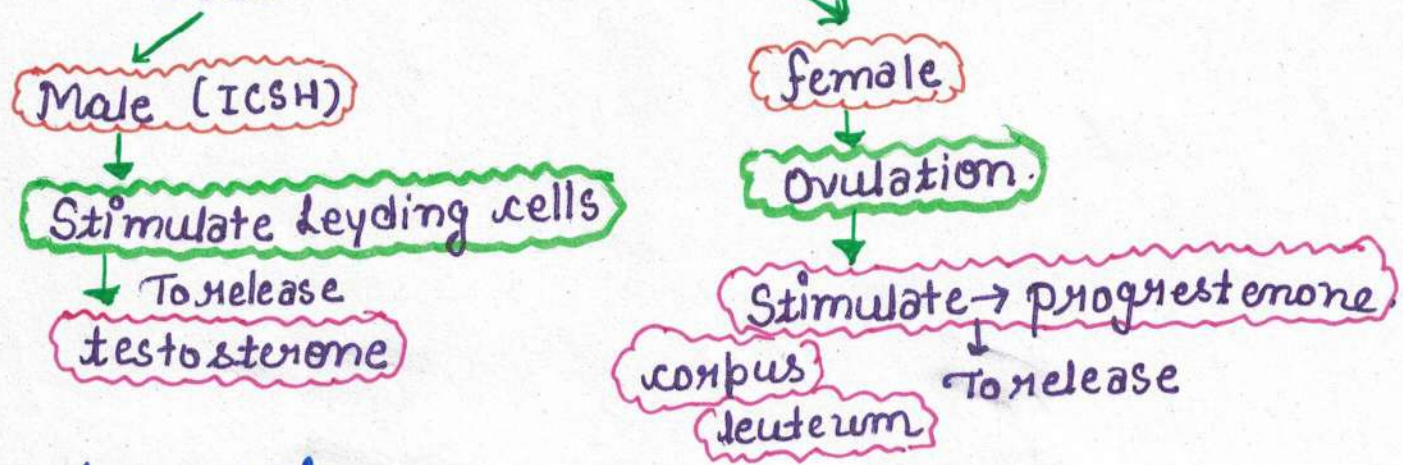 Male (ICSH)
Stimulate Leyding cells
To release
testosterone
female
Ovulation.
Stimulate → progrestenone.
corpus
leuteum
To release